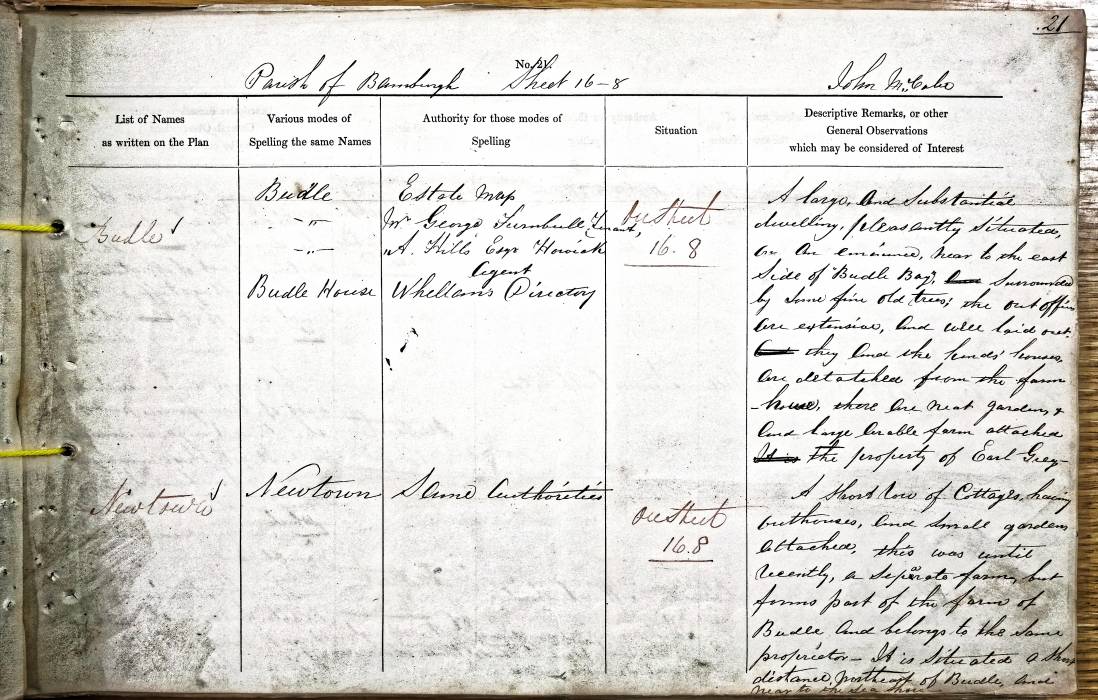 21
No. 21.
Parish of Bamburgh Sheet 16-8 John McCabe
List of Names
as written on the Plan
Various modes of
Spelling the same Names
Authority for those modes of
Spelling
Situation
Descriptive Remarks, or other
General Observations
which may be considered of Interest
Budle
Budle
- " -
- " -
Budle House
Estate Map
Mr George Turnbull, Tenant,
A. Hills Esqr Howick
Agent
Whellan's Directory
On Sheet
16.8
A large, and Substantial
dwelling, pleasantly Situated,
on an eminence, near to the east
side of Budle Bay, Surrounded
by some fine old trees; the out offices
are extensive, and well laid out.
they and the hinds' houses,
are detatched from the farm
-house, there are neat gardens, &
and large arable farm attached
It is the property of Earl Grey-
Newtown
Newtown
Same authorities
On Sheet
16.8
A Short Row of Cottages, having
outhouses, and small gardens
attached, this was until
recently, a separate farm, but
forms part of the farm of
Budle and belongs to the same
proprietor - It is situated a short
distance, northeast of Budle, and
near to the sea shore